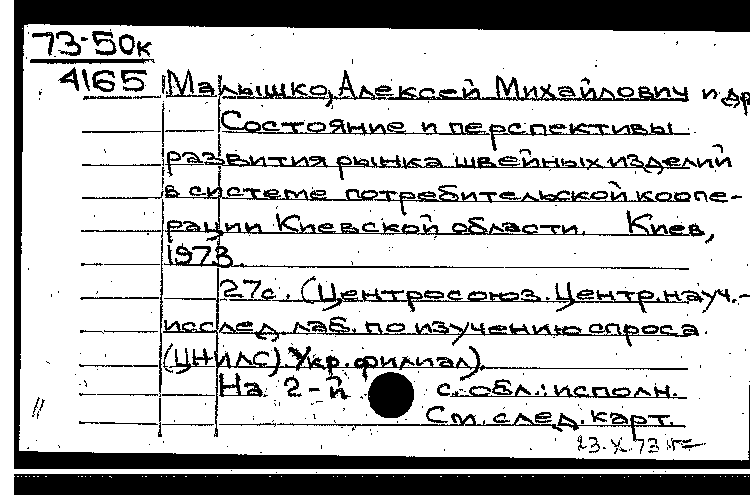 73-50к
4165 Малышко, Алексей Михайлович и др
Состояние и перспективы
развития рынка швейных изделий
в системе потребительской коопе-
рации Киевской области. Киев,
1973.
27с. (Центросоюз. Центр. науч.-
исслед. лаб. по изучению спроса
(ЦНИЛС). Укр. филиал).
На 2-й с. обл.: исполн.
См. след. карт.
23.X.73